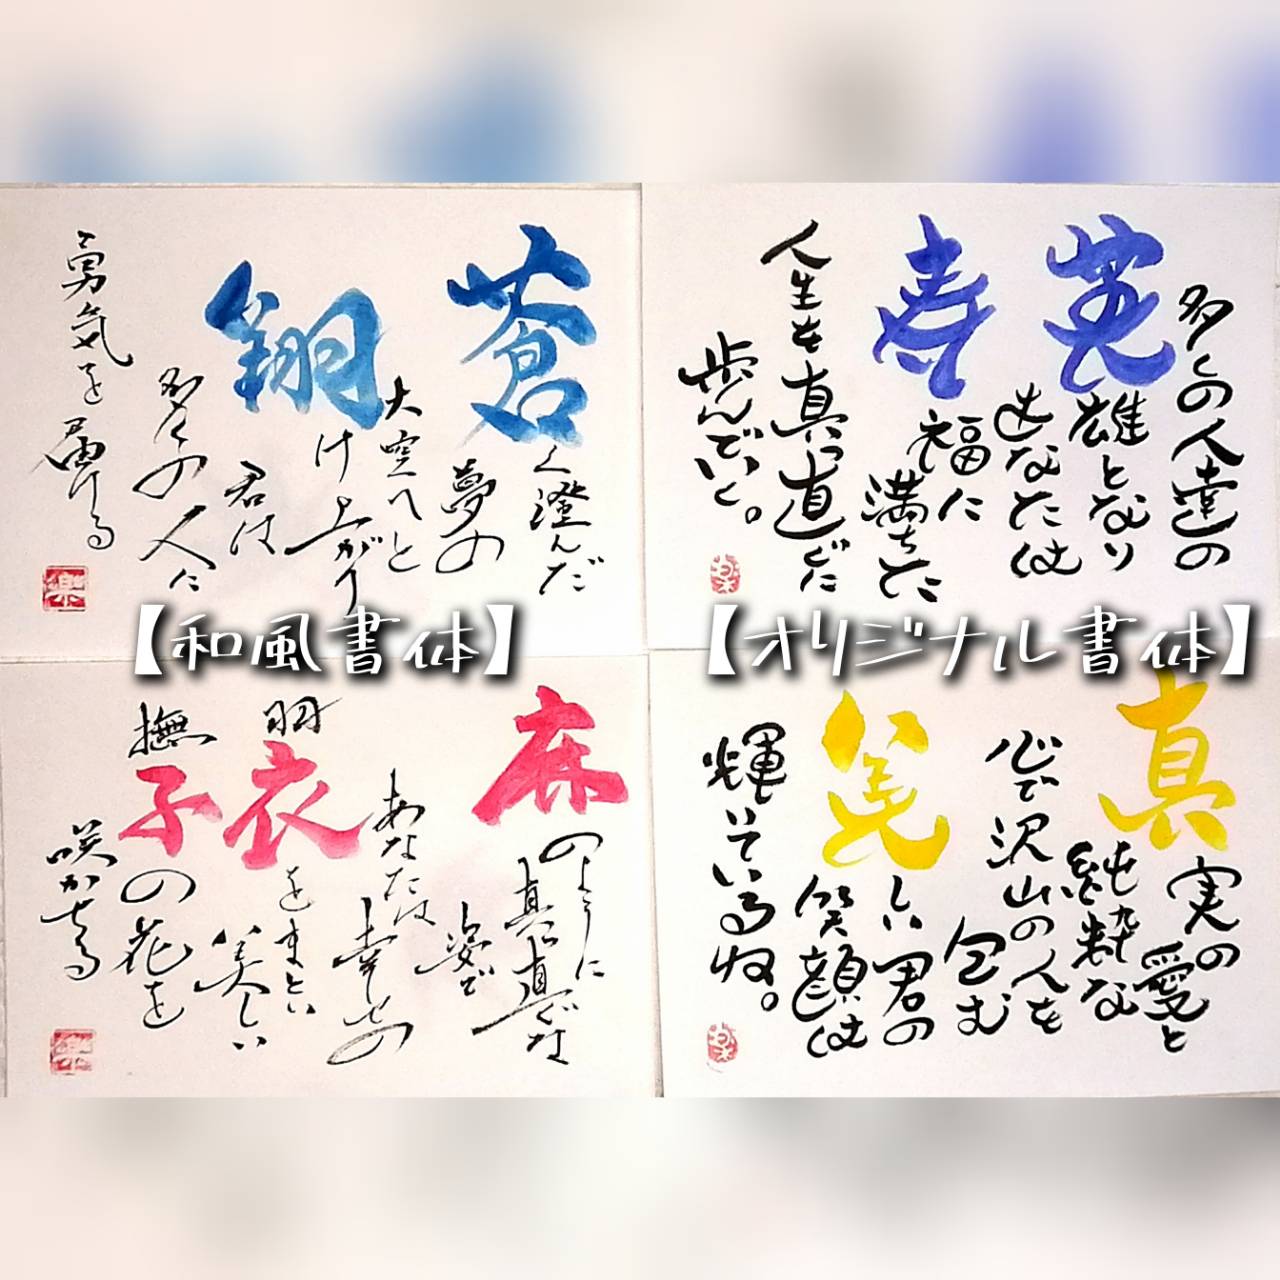 蒼く澄んだ
夢の
大空へと
翔け上がり
君は
多くの人に
勇気を届ける
多くの人達の
英雄となり
あなたは
寿福に
満ちた
人生を真っ直ぐに
歩んでいく。
【和風書体】
【オリジナル書体】
麻のように
真っ直ぐな
姿で
あなたは
幸せの
羽衣をまとい
美しい
撫子の花を
咲かせる
真実の
愛と
純粋な
心で沢山の人を
包む
美しい君の
笑顔は
輝いているね。